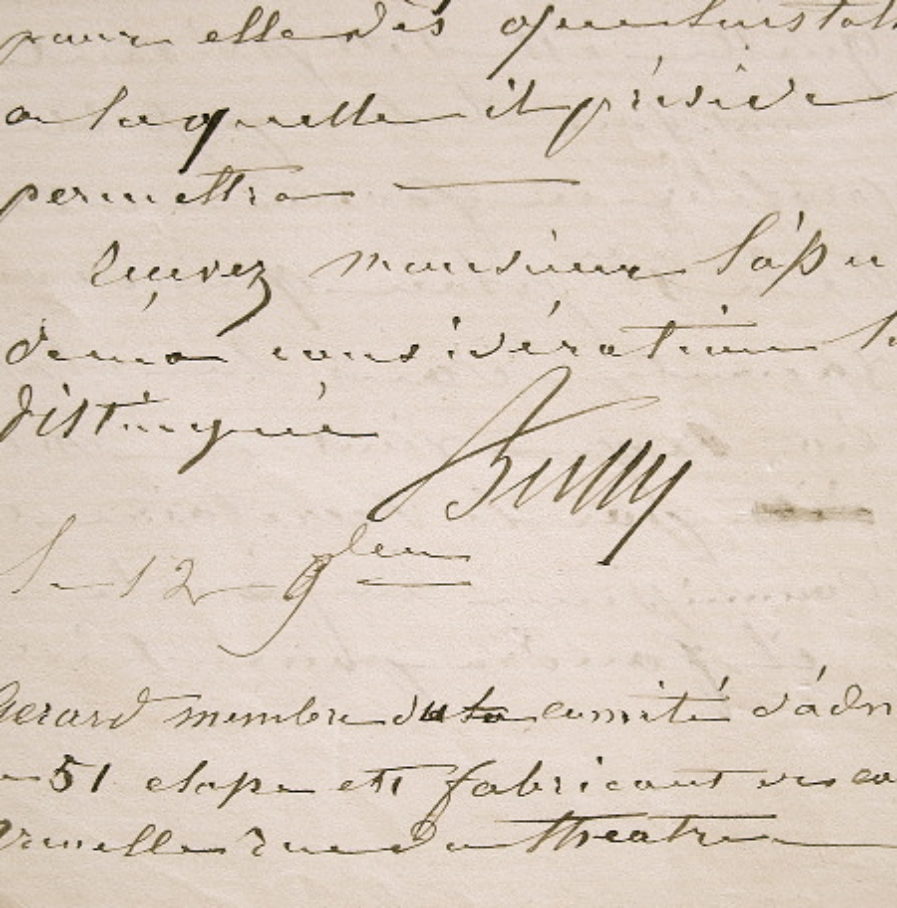 pour elle dès que l'install
a laquelle il préside
permettra
Recevez monsieur l'assu
de ma considération la
distinguée
le 12 9bre
Gerard membre du comité d'adm
51 classe est fabricant de ca
Grenelle rue du théatre